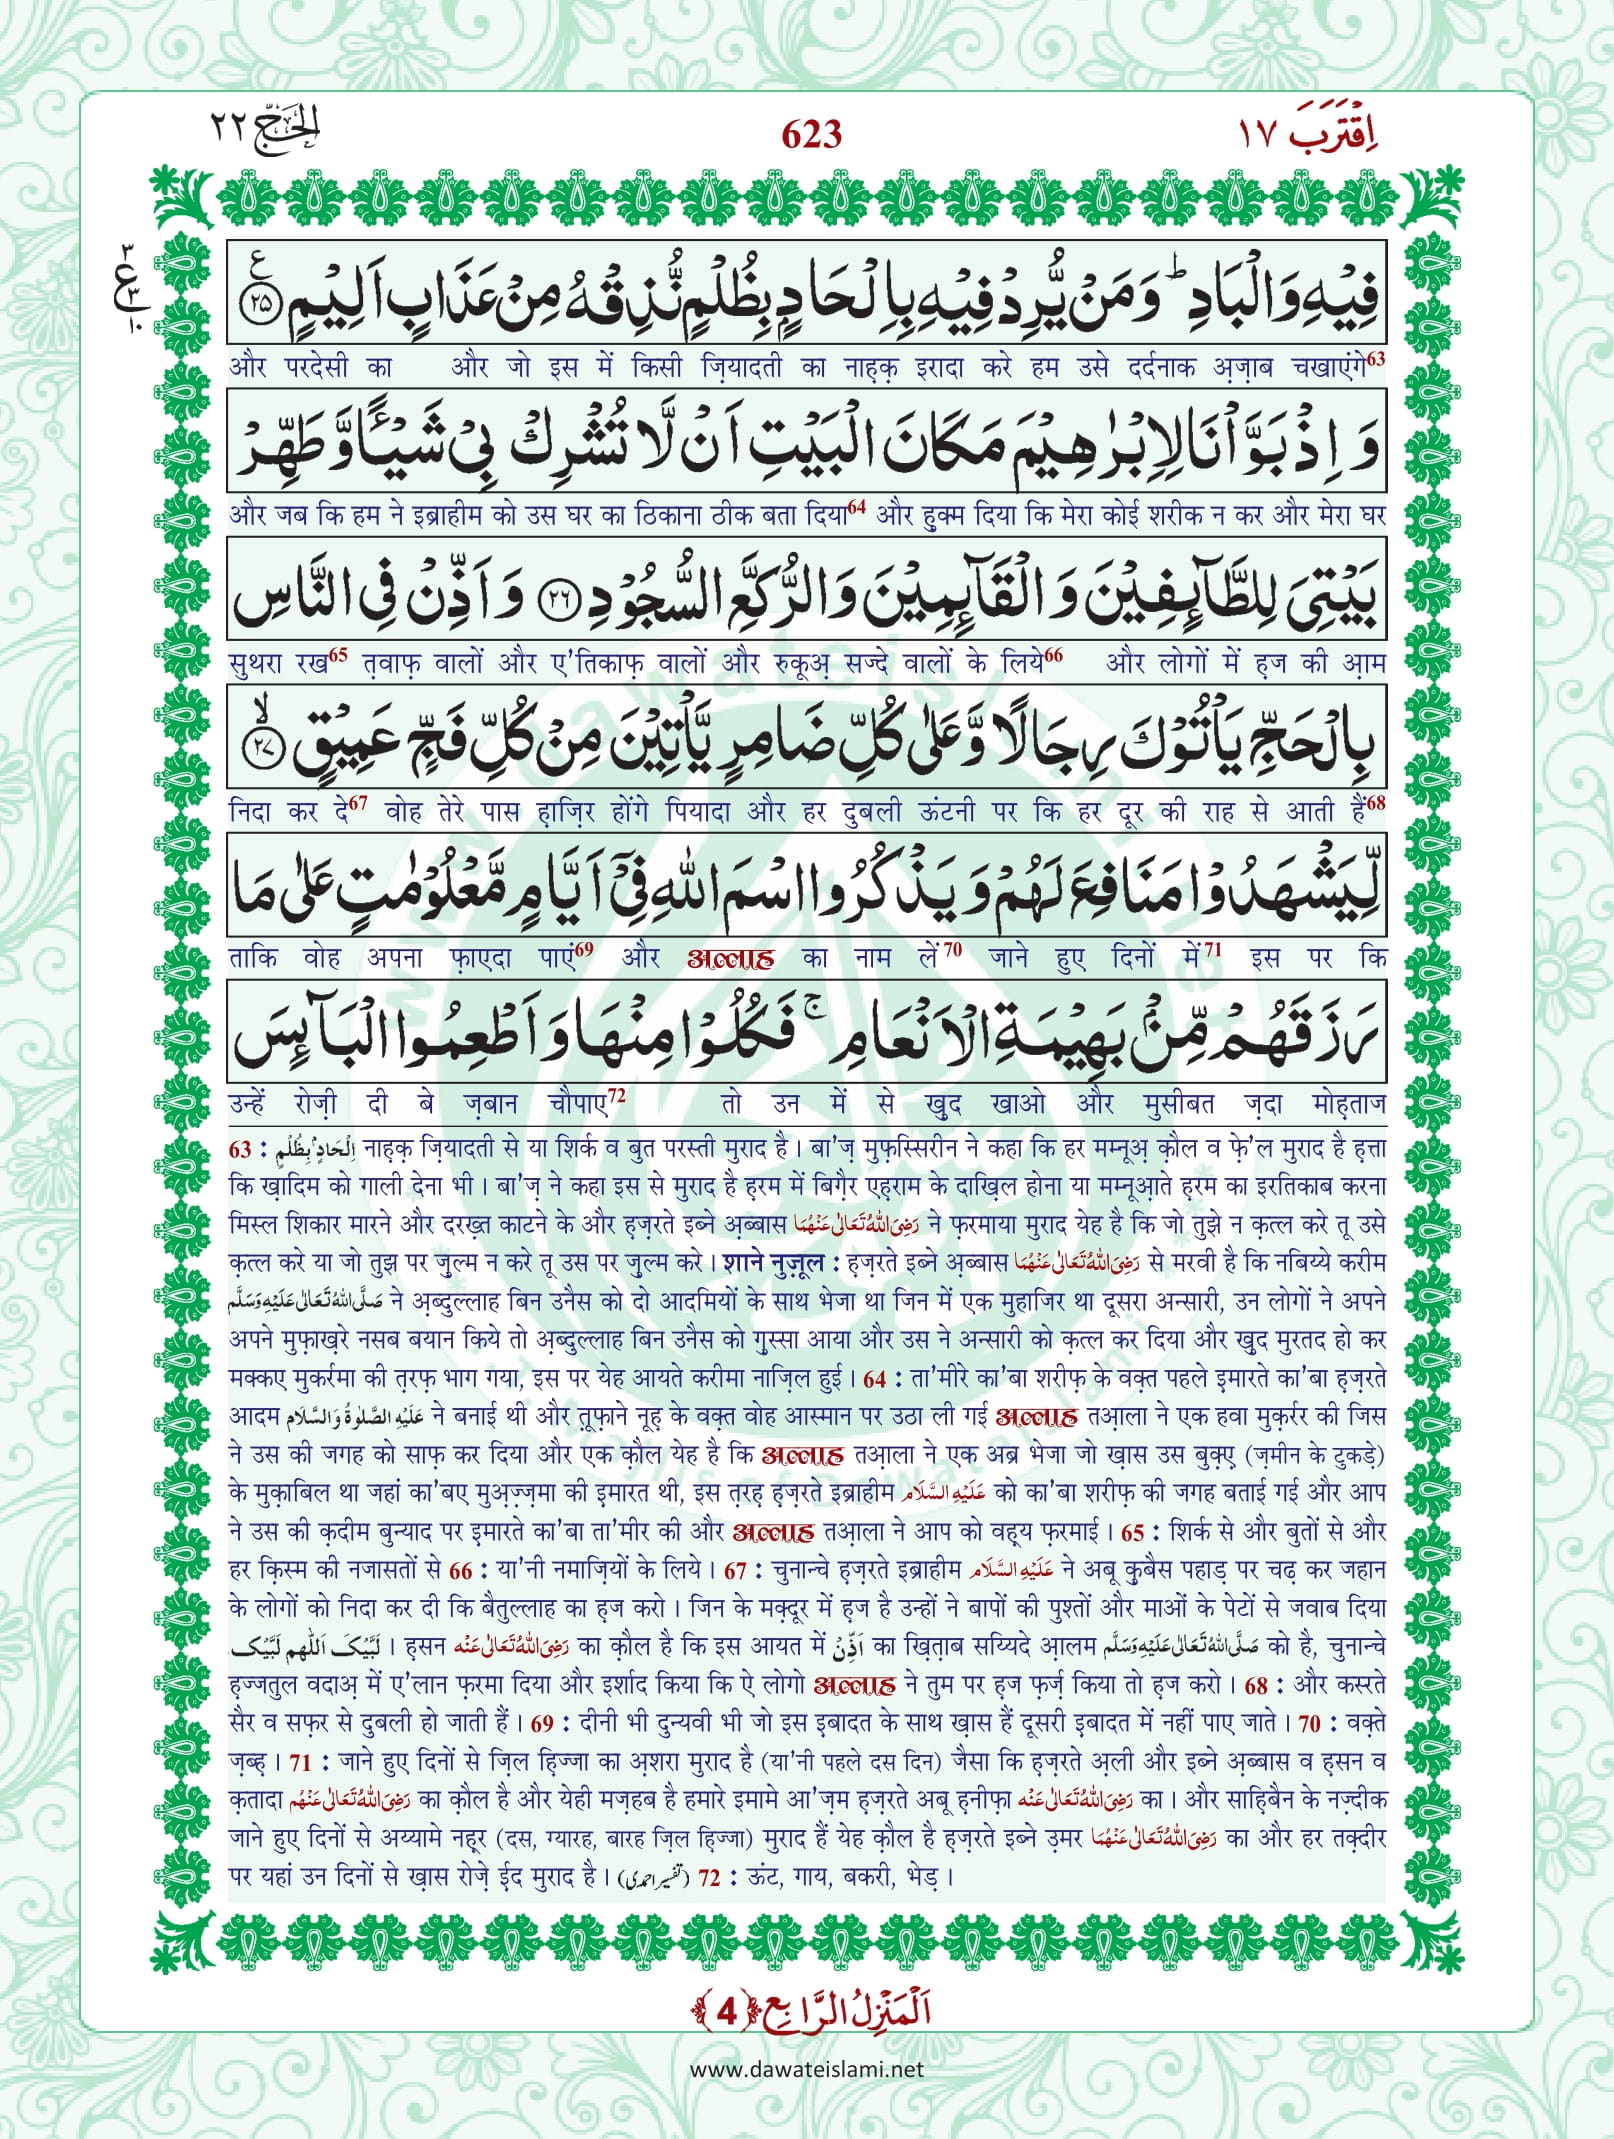 اِقْتَرَبَ ١٧
623
الحَجّ ٢٢
فِيْهِ وَالْبَادِ ؕ وَمَنْ يُّرِدْ فِيْهِ بِاِلْحَادٍۭ بِظُلْمٍ نُّذِقْهُ مِنْ عَذَابٍ اَلِيْمٍ ﴿٢٥﴾ ع
٣ ع ٣ ١٠
और परदेसी का और जो इस में किसी ज़ियादती का नाह़क़ इरादा करे हम उसे दर्दनाक अ़ज़ाब चखाएंगे63
وَ اِذْ بَوَّاْنَا لِاِبْرٰهِيْمَ مَكَانَ الْبَيْتِ اَنْ لَّا تُشْرِكْ بِيْ شَيْـًٔا وَّ طَهِّرْ
और जब कि हम ने इब्राहीम को उस घर का ठिकाना ठीक बता दिया64 और हुक्म दिया कि मेरा कोई शरीक न कर और मेरा घर
بَيْتِيَ لِلطَّآئِفِيْنَ وَ الْقَآئِمِيْنَ وَ الرُّكَّعِ السُّجُوْدِ ﴿٢٦﴾ وَ اَذِّنْ فِي النَّاسِ
सुथरा रख65 त़वाफ़ वालों और ए'तिकाफ़ वालों और रुकूअ़ सज्दे वालों के लिये66 और लोगों में ह़ज की अ़ाम
بِالْحَجِّ يَاْتُوْكَ رِجَالًا وَّ عَلٰى كُلِّ ضَامِرٍ يَّاْتِيْنَ مِنْ كُلِّ فَجٍّ عَمِيْقٍ ﴿٢٧﴾ ۙ
निदा कर दे67 वोह तेरे पास ह़ाज़िर होंगे पियादा और हर दुबली ऊंटनी पर कि हर दूर की राह से आती हैं68
لِّيَشْهَدُوْا مَنَافِعَ لَهُمْ وَ يَذْكُرُوا اسْمَ اللّٰهِ فِيْۤ اَيَّامٍ مَّعْلُوْمٰتٍ عَلٰى مَا
ताकि वोह अपना फ़ाएदा पाएं69 और अल्लाह का नाम लें70 जाने हुए दिनों में71 इस पर कि
رَزَقَهُمْ مِّنْۢ بَهِيْمَةِ الْاَنْعَامِ ۚ فَكُلُوْا مِنْهَا وَ اَطْعِمُوا الْبَآئِسَ
उन्हें रोज़ी दी बे ज़बान चौपाए72 तो उन में से खु़द खाओ और मुसीबत ज़दा मोह़ताज
63 : اِلْحَادٍۭ بِظُلْمٍ नाह़क़ ज़ियादती से या शिर्क व बुत परस्ती मुराद है। बा'ज़ मुफ़स्सिरीन ने कहा कि हर मम्नूअ़ क़ौल व फ़े'ल मुराद है ह़त्ता
कि ख़ादिम को गाली देना भी। बा'ज़ ने कहा इस से मुराद है ह़रम में बिग़ैर एह़राम के दाख़िल होना या मम्नूआ़ते ह़रम का इरतिकाब करना
मिस्ल शिकार मारने और दरख़्त काटने के और ह़ज़रते इब्ने अ़ब्बास رَضِیَ اللّٰهُ تَعَالٰی عَنْهُمَا ने फ़रमाया मुराद येह है कि जो तुझे न क़त्ल करे तू उसे
क़त्ल करे या जो तुझ पर ज़ुल्म न करे तू उस पर ज़ुल्म करे। शाने नुज़ूल : ह़ज़रते इब्ने अ़ब्बास رَضِیَ اللّٰهُ تَعَالٰی عَنْهُمَا से मरवी है कि नबिय्ये करीम
صَلَّى اللّٰهُ تَعَالٰى عَلَيْهِ وَسَلَّم ने अ़ब्दुल्लाह बिन उनैस को दो आदमियों के साथ भेजा था जिन में एक मुहाजिर था दूसरा अन्सारी, उन लोगों ने अपने
अपने मुफ़ाख़रे नसब बयान किये तो अ़ब्दुल्लाह बिन उनैस को गुस्सा आया और उस ने अन्सारी को क़त्ल कर दिया और खु़द मुरतद हो कर
मक्कए मुकर्रमा की त़रफ़ भाग गया, इस पर येह आयते करीमा नाज़िल हुई। 64 : ता'मीरे का'बा शरीफ़ के वक़्त पहले इमारते का'बा ह़ज़रते
आदम عَلَيْهِ الصَّلٰوةُ وَالسَّلَام ने बनाई थी और त़ूफ़ाने नूह़ के वक़्त वोह आस्मान पर उठा ली गई अल्लाह तआ़ला ने एक हवा मुक़र्रर की जिस
ने उस की जगह को साफ़ कर दिया और एक क़ौल येह है कि अल्लाह तआ़ला ने एक अब्र भेजा जो ख़ास उस बुक़्ए़ (ज़मीन के टुकड़े)
के मुक़ाबिल था जहां का'बए मुअ़ज़्ज़मा की इमारत थी, इस त़रह़ ह़ज़रते इब्राहीम عَلَيْهِ السَّلَام को का'बा शरीफ़ की जगह बताई गई और आप
ने उस की क़दीम बुन्याद पर इमारते का'बा ता'मीर की और अल्लाह तआ़ला ने आप को वह़्य फ़रमाई। 65 : शिर्क से और बुतों से और
हर क़िस्म की नजासतों से 66 : या'नी नमाज़ियों के लिये। 67 : चुनान्चे ह़ज़रते इब्राहीम عَلَيْهِ السَّلَام ने अबू क़ुबैस पहाड़ पर चढ़ कर जहान
के लोगों को निदा कर दी कि बैतुल्लाह का ह़ज करो। जिन के मक़्दूर में ह़ज है उन्हों ने बापों की पुश्तों और माओं के पेटों से जवाब दिया
لَبَّيْكَ اَللّٰهُم لَبَّيْك। ह़सन رَضِیَ اللّٰهُ تَعَالٰی عَنْه का क़ौल है कि इस आयत में اَذِّنْ का ख़ित़ाब सय्यिदे आ़लम صَلَّى اللّٰهُ تَعَالٰى عَلَيْهِ وَسَلَّم को है, चुनान्चे
ह़ज्जतुल वदाअ़ में ए'लान फ़रमा दिया और इर्शाद किया कि ऐ लोगो अल्लाह ने तुम पर ह़ज फ़र्ज़ किया तो ह़ज करो। 68 : और कस्रते
सैर व सफ़र से दुबली हो जाती हैं। 69 : दीनी भी दुन्यवी भी जो इस इबादत के साथ ख़ास हैं दूसरी इबादत में नहीं पाए जाते। 70 : वक़्ते
ज़ब्ह़। 71 : जाने हुए दिनों से ज़िल हि़ज्जा का अ़शरा मुराद है (या'नी पहले दस दिन) जैसा कि ह़ज़रते अ़ली और इब्ने अ़ब्बास व ह़सन व
क़तादा رَضِیَ اللّٰهُ تَعَالٰی عَنْهُم का क़ौल है और येही मज़हब है हमारे इमामे आ'ज़म ह़ज़रते अबू ह़नीफ़ा رَضِیَ اللّٰهُ تَعَالٰی عَنْه का। और साह़िबैन के नज़्दीक
जाने हुए दिनों से अय्यामे नह़र (दस, ग्यारह, बारह ज़िल हि़ज्जा) मुराद हैं येह क़ौल है ह़ज़रते इब्ने उ़मर رَضِیَ اللّٰهُ تَعَالٰی عَنْهُمَا का और हर तक़्दीर
पर यहां उन दिनों से ख़ास रोज़े ई़द मुराद है। (تفسیر احمدی) 72 : ऊंट, गाय, बकरी, भेड़।
اَلْمَنْزِلُ الرَّابِع ﴿4﴾
www.dawateislami.net